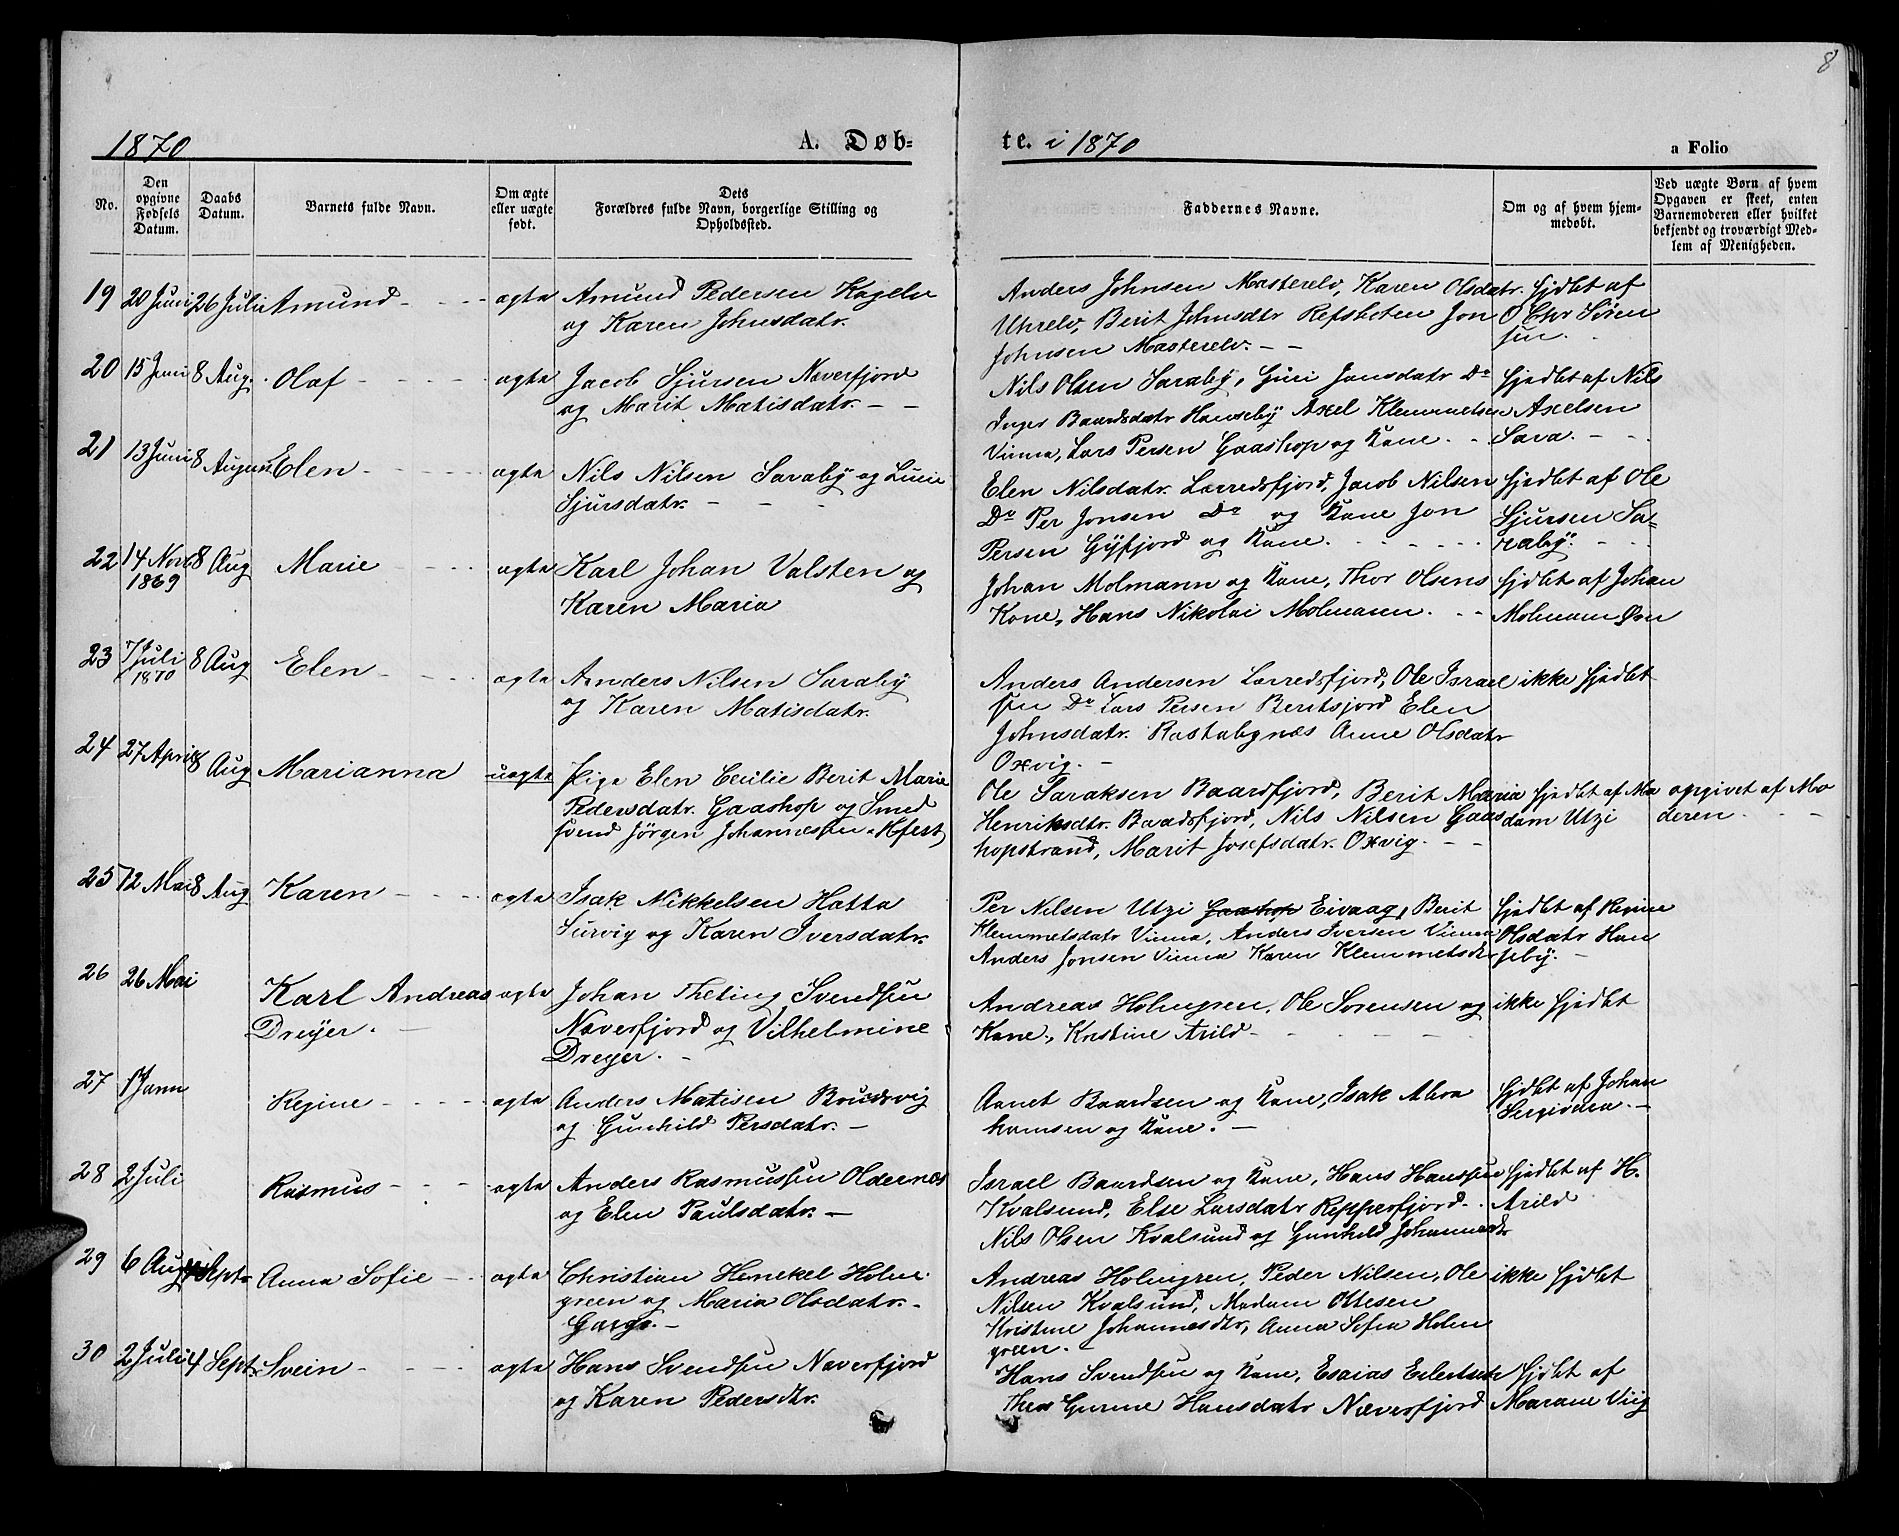 8
1870
A. Døb-
te. i 1870
a Folio
No.
Den
opgivne
Fødsels
Datum.
Daabs
Datum.
Barnets fulde Navn.
Om ægte
eller uægte
født.
Dets
Forældres fulde Navn, borgerlige Stilling og
Opholdssted.
Faddernes Navne.
Om og af hvem hjem-
medøbt.
Ved uægte Børn af hvem
Opgaven er skeet, enten
Barnemoderen eller hvilket
bekjendt og troværdigt Med-
lem af Menigheden.
19 20 Juni 26 Juli Amund ægte Amund Pedersen Kogelv
og Karen Johnsdatr.
Anders Johnsen Masterelv, Karen Olsdatr. hjdbt af
Uhrelv, Berit Johnsdtr Refsboten Jon O Chr Søren
Johnsen Masterelv. sen.
20 15 Juni 8 Aug. Olaf ægte Jacob Sjursen Næverfjord
og Marit Matisdatr.
Nils Olsen Saraby, Guri Jonsdatr Do hjedbt af Nils
Inger Baardsdatr Hanseby Axel Klemmetsen Axelsen
Vinna, Lars Persen Gaashop og Kone. Sara.
21 13 Juni 8 August Elen ægte Nils Nilsen Saraby og Lucie
Sjursdatr.
Elen Nilsdatr. Lærredsfjord, Jacob Nilsen hjedbt af Ole
Do Per Jonsen Do og Kone Jon Sjursen Sa-
Persen Gyfjord og Kone. raby.
22 14 Novb 1869 8 Aug Marie ægte Karl Johan Valsten og
Karen Maria
Johan Molmann og Kone, Thor Olsens hjdbt af Johan
Kone, Hans Nikolai Molmann. Molmann
23 7 Juli 1870 8 Aug Elen ægte Anders Nilsen Saraby
og Karen Matisdatr.
Anders Andersen Lærredsfjord, Ole Israel ikke hjedbt
sen Do Lars Persen Beritsjord Elen
Johnsdatr. Rastabynæs Anne Olsdatr
Oxvig.
24 27 April 8 Aug Marianna uægte Pige Elen Cecilie Berit Maria
Pedersdatr. Gaashop og Smed
svend Jörgen Johannessen Hfest,
Ole Saraksen Baardfjord, Berit Maria hjedbt af Ma opgivet af Mo
Henriksdtr. Baadsfjord, Nils Nilsen Gaas dam Utzi deren.
hopstrand, Marit Josefsdatr. Oxvig.
25 12 Mai 8 Aug Karen ægte Isak Nikkelsen Hatta
Survig og Karen Iversdatr.
Per Nilsen Utzi Gaashop Eivaag, Berit hjedbt af Regine
Klemmetsdatr Vinna, Anders Iversen Vinna Olsdatr Han
Anders Jonsen Vinna Karen Klemmetsdtr seby.
26 26 Mai Karl Andreas ægte Johan Theting Svendsen
Dreyer. Næverfjord og Vilhelmine
Dreyer.
Andreas Holmgren, Ole Sørensen og ikke hjedbt
Kone, Kristine Arild
27 1 Jann Regine ægte Anders Matisen
og Gunhild Persdatr.
Aanet Baardsen og Kone, Isak Abra hjdbt af Johan
hamsen og Kone.
28 2 Juli Rasmus ægte Anders Rasmussen Oldernæs
og Elen Paulsdatr.
Israel Baardsen og Kone, Hans Hanssen hjedbt af H.
Kvalsund, Else Larsdatr Repperfjord. Arild
Nils Olsen Kvalsund og Gunhild Johannesdtr
29 6 Aug Septr Anna Sofie ægte Christian Henckel Holm
green og Maria Olsdatr.
Gargo.
Andreas Holmgren, Peder Nilsen, Ole ikke hjdbt
Nilsen Kvalsund, Madam Ottesen
Kristine Johannesdtr, Anna Sofia Holm
green.
30 2 Juli 4 Sept. Svein ægte Hans Svendsen Næverfjord
og Karen Pedersdtr.
Hans Svendsen og Kone, Esaias Eilertsen hjdbt af
Gurine Hansdatr Næverfjord Marane Viig